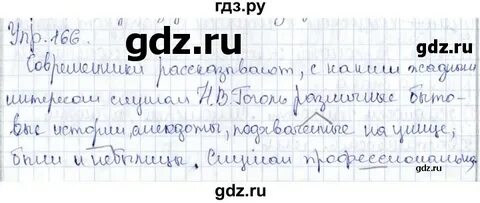 Упр. 166.
Современники рассказывают, с каким жадным
интересом слушал Н.В.Гоголь различные быто-
вые истории, анекдоты, подхваченные на улице,
были и небылицы. Слушал профессионально,
gdz.ru
gdz.ru
gdz.ru
gdz.ru
gdz.ru